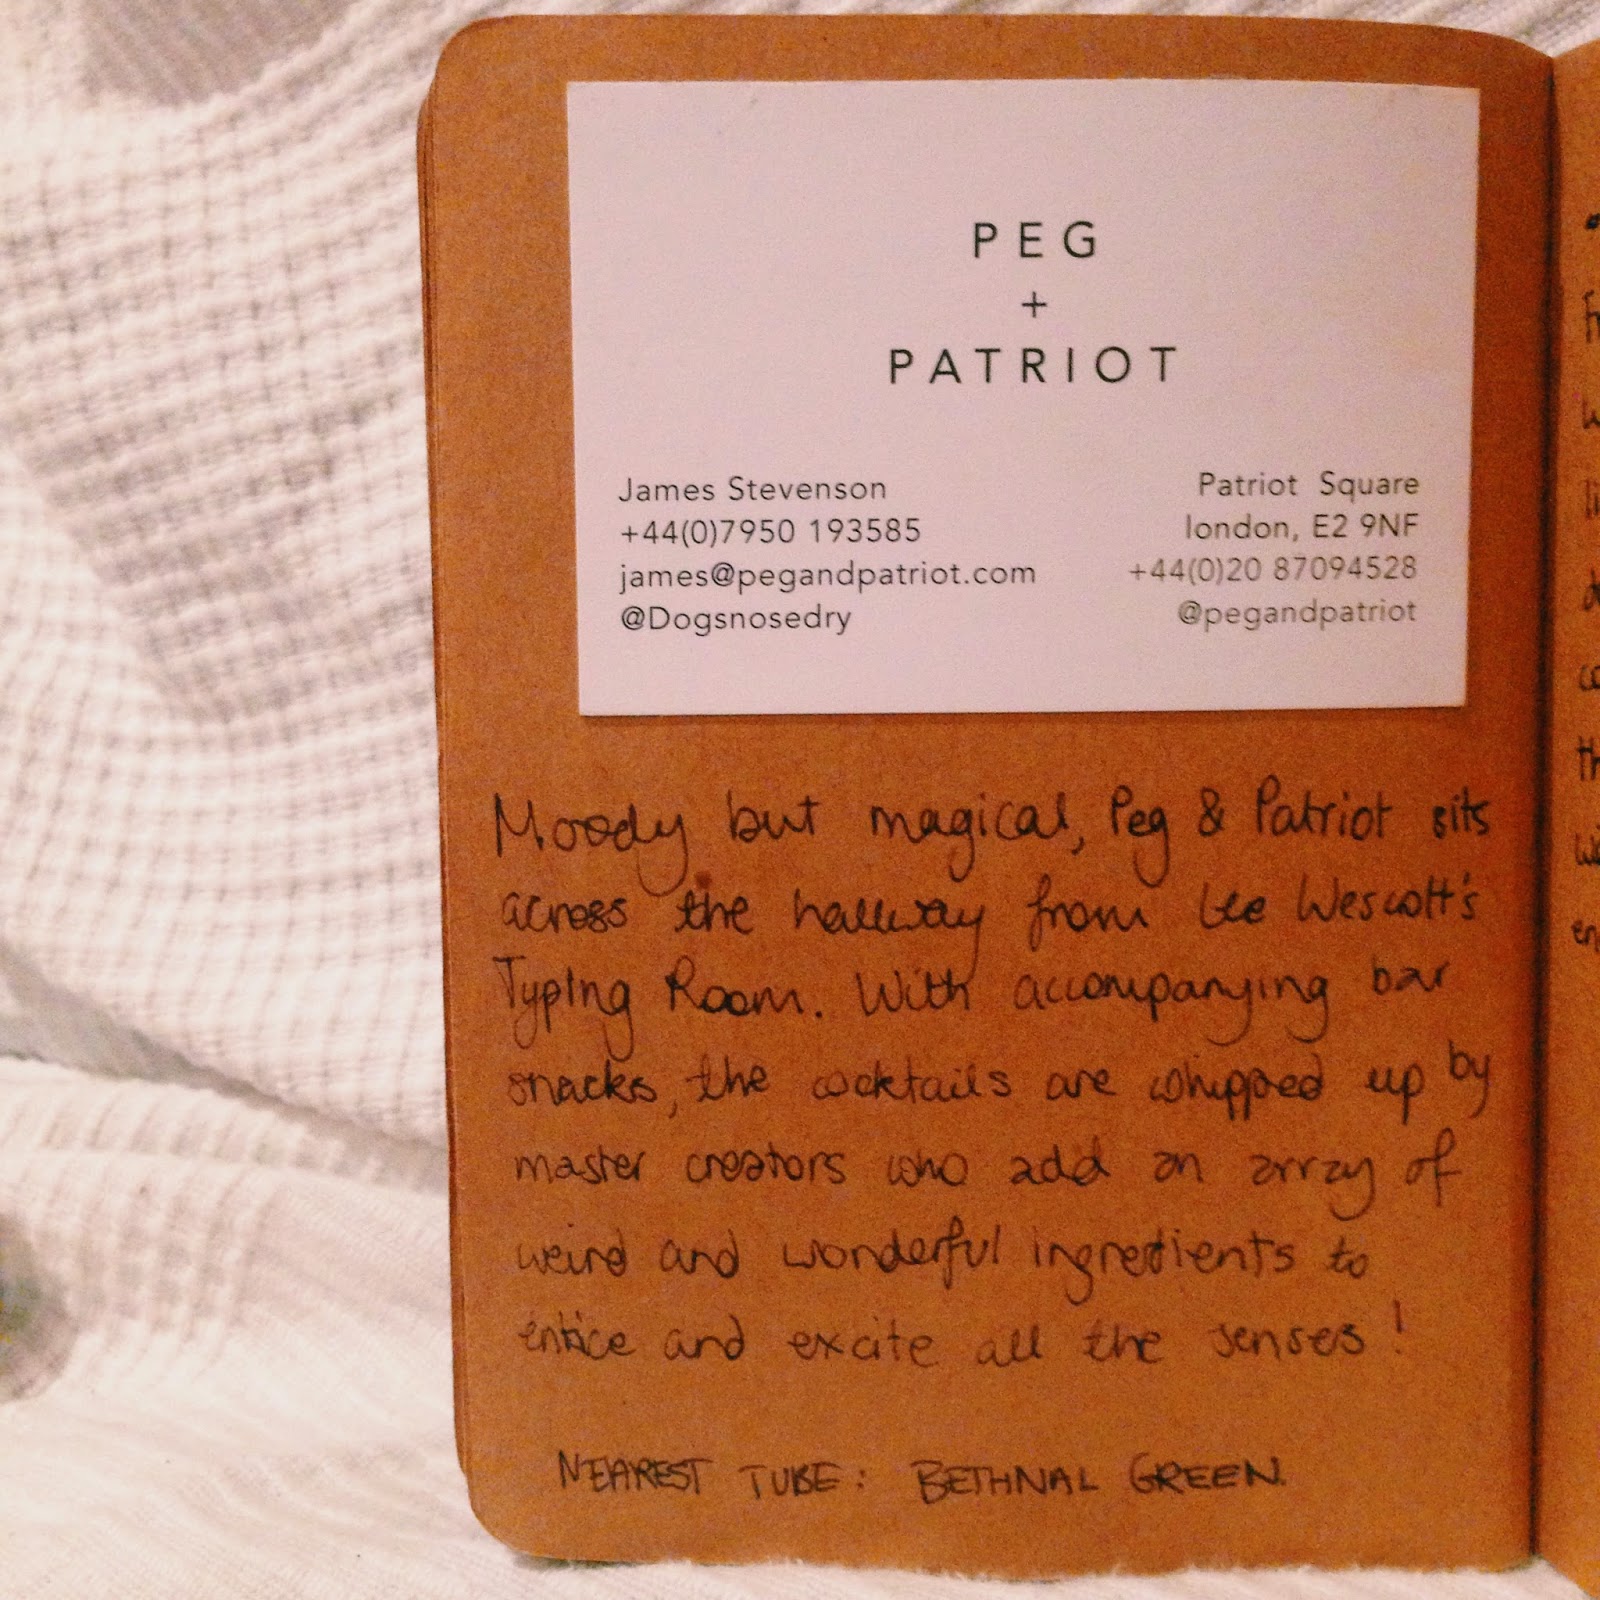 PEG
+
PATRIOT
James Stevenson
+44(0)7950 193585
james@pegandpatriot.com
@Dogsnosedry
Patriot Square
london, E2 9NF
+44(0)20 87094528
@pegandpatriot
Moody but magical, Peg & Patriot sits
across the hallway from Lee Wescott's
Typing Room. With accompanying bar
snacks, the cocktails are whipped up by
master creators who add an array of
weird and wonderful ingredients to
entice and excite all the senses!
NEAREST TUBE: BETHNAL GREEN.